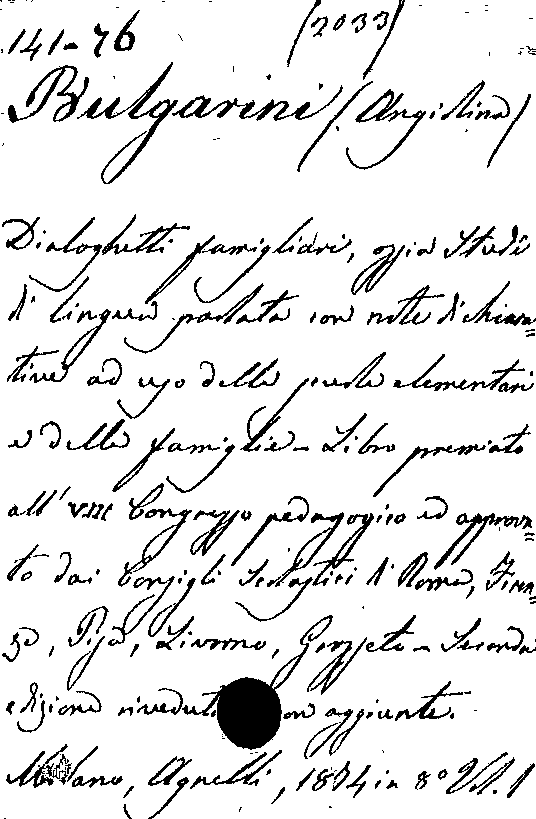 141-76 (2033)
Bulgarini (Angiolina)
Dialoghetti famigliari, ossia Studi
di lingua parlata con note dichiara=
tive ad uso delle scuole elementari
e delle famiglie - Libro premiato
all' VIII Congresso pedagogico ed approva=
to dai Consigli Scolastici di Roma, Firen=
ze, Pisa, Livorno, Grosseto - Seconda
edizione riveduta con aggiunte.
Milano, Agnelli, 1874 in 8° Vol. 1